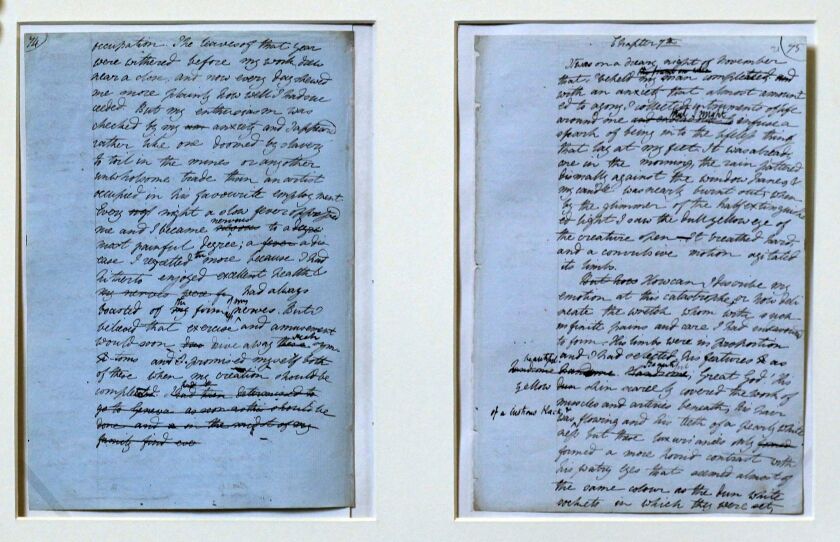 74
occupation. The leaves of that year
were withered before my work drew
near a close, and now every day shewed
me more plainly how well I had suc
ceeded But my enthusiasm was
checked by my anxiety and I appeared
rather like one doomed by slavery
to toil in the mines or any other
unwholsome trade than an artist
occupied in his favourite employment
Every night a slow fever oppressed
nervous
me and I became to a
most painful degree; a fever a dis
ease I regretted the more because I had
hitherto enjoyed excellent health &
my nerves were had always
boasted of the my firmness nerves. But I
beleived that exercise and amusement
would soon drive away such symp
toms and I promised myself both
of these when my creation should be
completed I had then determined to
go to Geneva as soon as this should be
done and in the midst of my
family find
Chapter 7th
75
It was on a dreary night of November
that I beheld my man completed and
with an anxiety that almost amount
ed to agony I collected instruments of life
around me that I might infuse a
spark of being into the lifeless thing
that lay at my feet. It was already
one in the morning, the rain pattered
dismally against the window panes &
my candle was nearly burnt out, when
by the glimmer of the half extinguish
ed light I saw the dull yellow eye of
the creature open. It breathed hard
and a convulsive motion agitated
its limbs.
But how How can I describe my
emotion at this catastrophe, or how deli
neate the wretch whom with such
infinite pains and care I had endeavoured
to form. His limbs were in proportion
and I had selected his features as
beautiful
handsome handsome. Great God! His
yellow dun skin scarcely covered the work of
muscles and arteries beneath; his hair
of a lustrous black &
was flowing and his teeth of a pearly white
ness but these luxuriances only formed
formed a more horrid contrast with
his watry eyes that seemed almost of
the same colour as the dun white
sockets in which they were set,